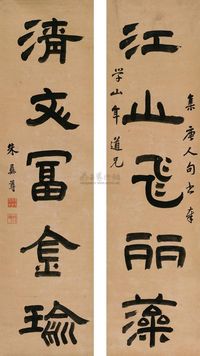 江山飞丽藻
清文冨金瑜
集唐人句书奉
学山年道兄
朱彝尊